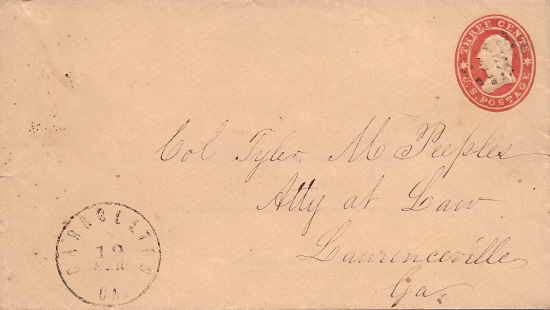 THREE CENTS
U.S. POSTAGE
Col Tyler M Peeples
Atty at Law
Laurenceville
Ga
CARROLLTON
MAR
GA.